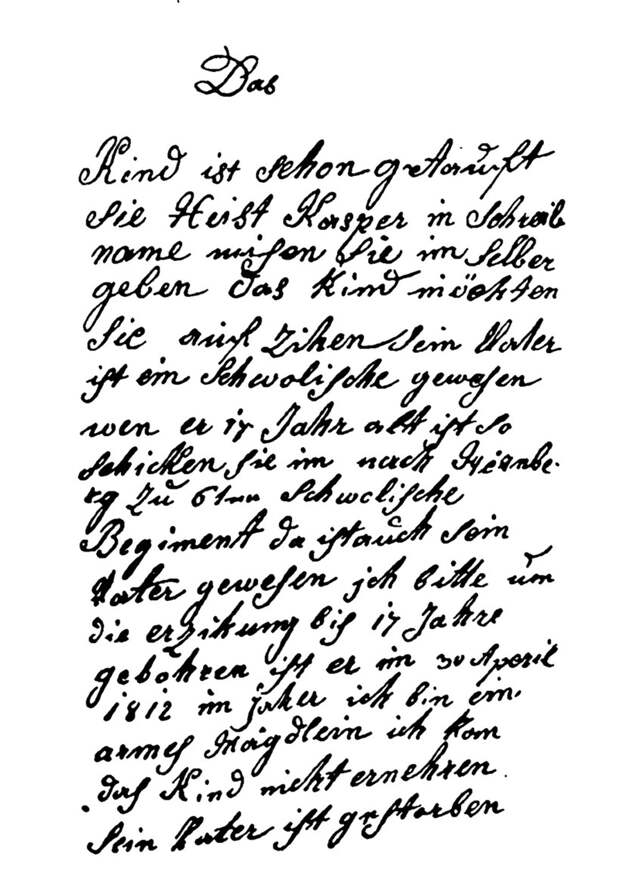 Das
Kind ist schon getauft
Sie Heist Kasper in Schreib
name misen Sie im Selber
geben das Kind möchten
Sie auf Zihen Sein Vater
ist ein Schwolische gewesen
wen er 17 Jahr alt ist so
schicken Sie im nach Nirnbe
rg Zu 6ten Schwolische
Begiment da ist auch sein
Vater gewesen ich bitte um
die erzikung bis 17 Jahre
gebohren ist er im 30 Aperil
1812 im Jaher ich bin ein
armes Mägdlein ich kan
das Kind nicht ernehren
Sein Vater ist gestorben